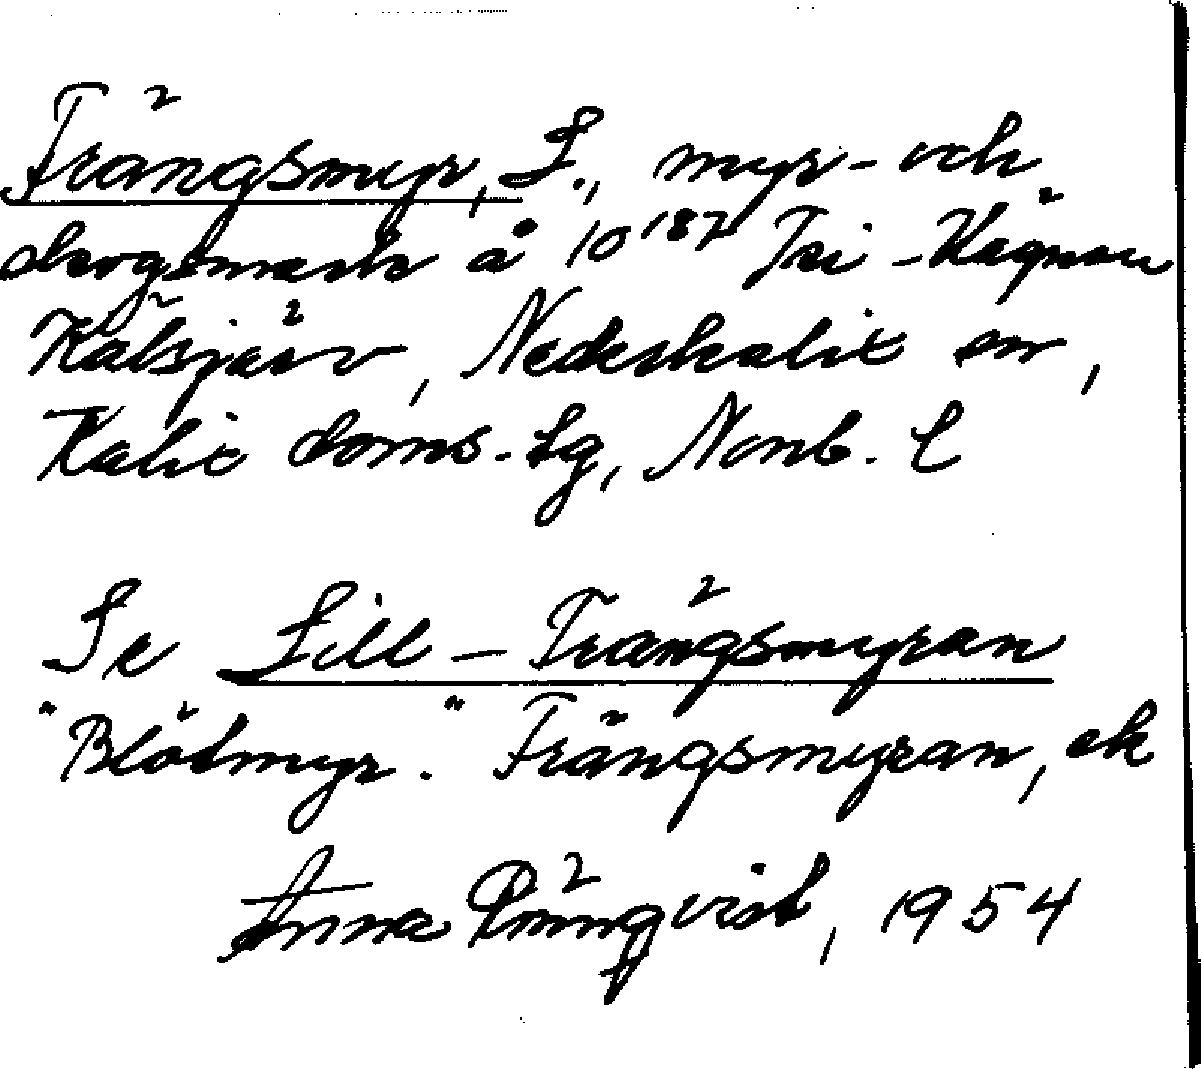 Trängsmyr, L., myr- och
skogsmark å 10¹⁸⁷ Tri-Kägnau
Kälsjärv, Nederkalix sn,
Kalix doms.-lg, Norrb. L
Se Lill-Trängsmyran
"Blötmyr." Trängsmyran, ek
Anna Rönnqvist, 1954